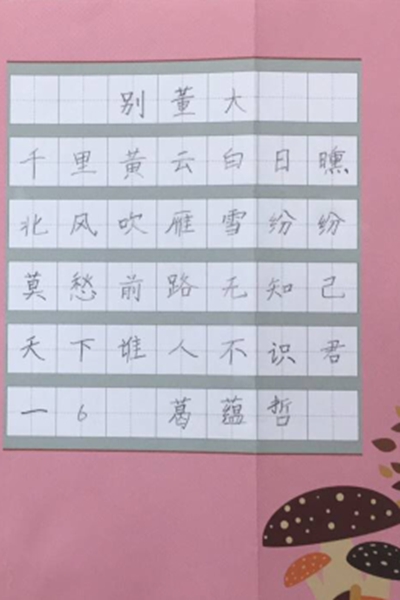 别董大
千里黄云白日曛
北风吹雁雪纷纷
莫愁前路无知己
天下谁人不识君
一6 葛蕴哲